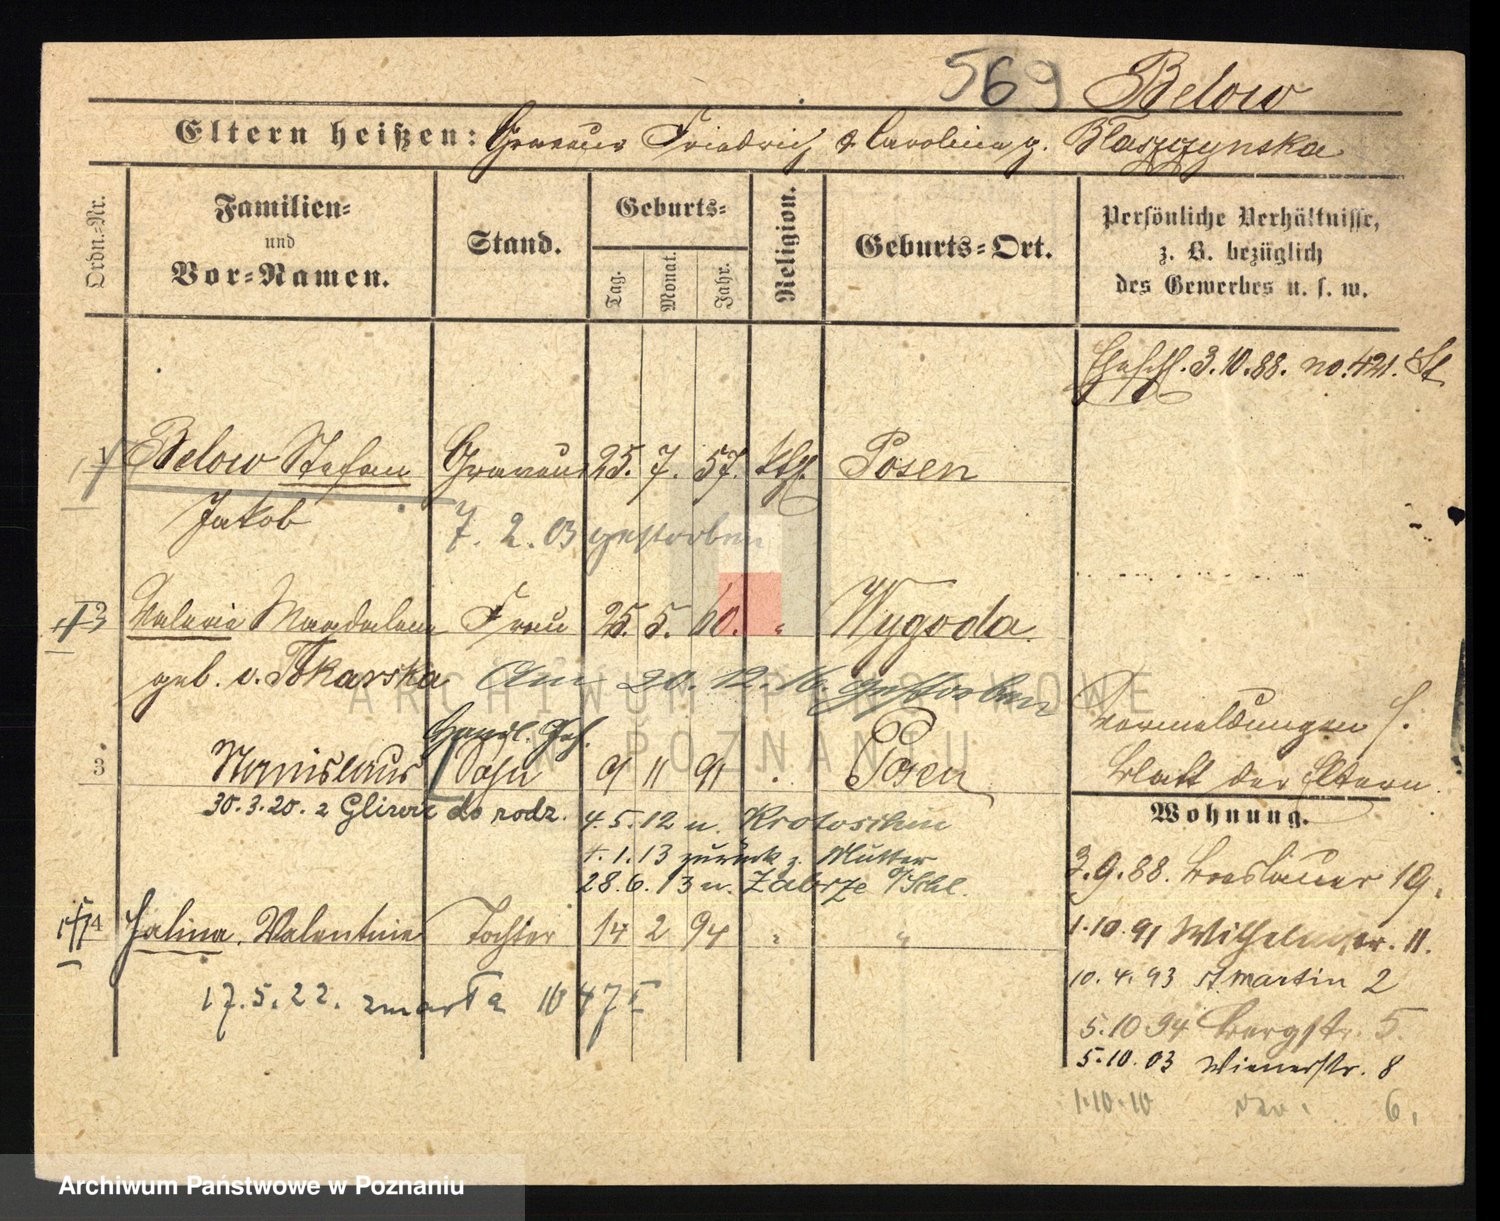 569 Below
Eltern heißen: Graveur Friedrich & Caroline g. Blaszczynska
Ordn.-Nr.
Familien-
und
Vor-Namen.
Stand.
Geburts-
Tag.
Monat.
Jahr.
Religion.
Geburts-Ort.
Persönliche Verhältnisse,
z. B. bezüglich
des Gewerbes u. s. w.
Eheschl. 3.10.88. no. 421. St
1 Below Stefan Graveur 25. 7. 57. kth. Posen
Jakob
7. 2. 03 gestorben
2 Valerie Magdalena Frau 25. 5. 60. " Wygoda
geb. v. Tokarska Am 20. 12. 16. gestorben
Handl. Geh.
3 Stanislaus Sohn 9 11 91 Posen
Vermeldungen s.
Blatt der Eltern.
30.3.20. z Gliwic do rodz.
4.5.12 n. Krotoschin
1.13 zurück z. Mutter
28.6.13 n. Zabrze O/Schl.
4 Halina. Valentine Tochter 14 2 94 " "
17.5.22. zmarła
Wohnung.
3.9.88. Breslauer 19.
1.10.91 Wilhelmstr. 11.
10.4.93 St Martin 2
5.10 94 Bergstr. 5.
5.10.03 Wienerstr. 8
1.10.10 6.
ARCHIWUM PAŃSTWOWE
W POZNANIU
Archiwum Państwowe w Poznaniu